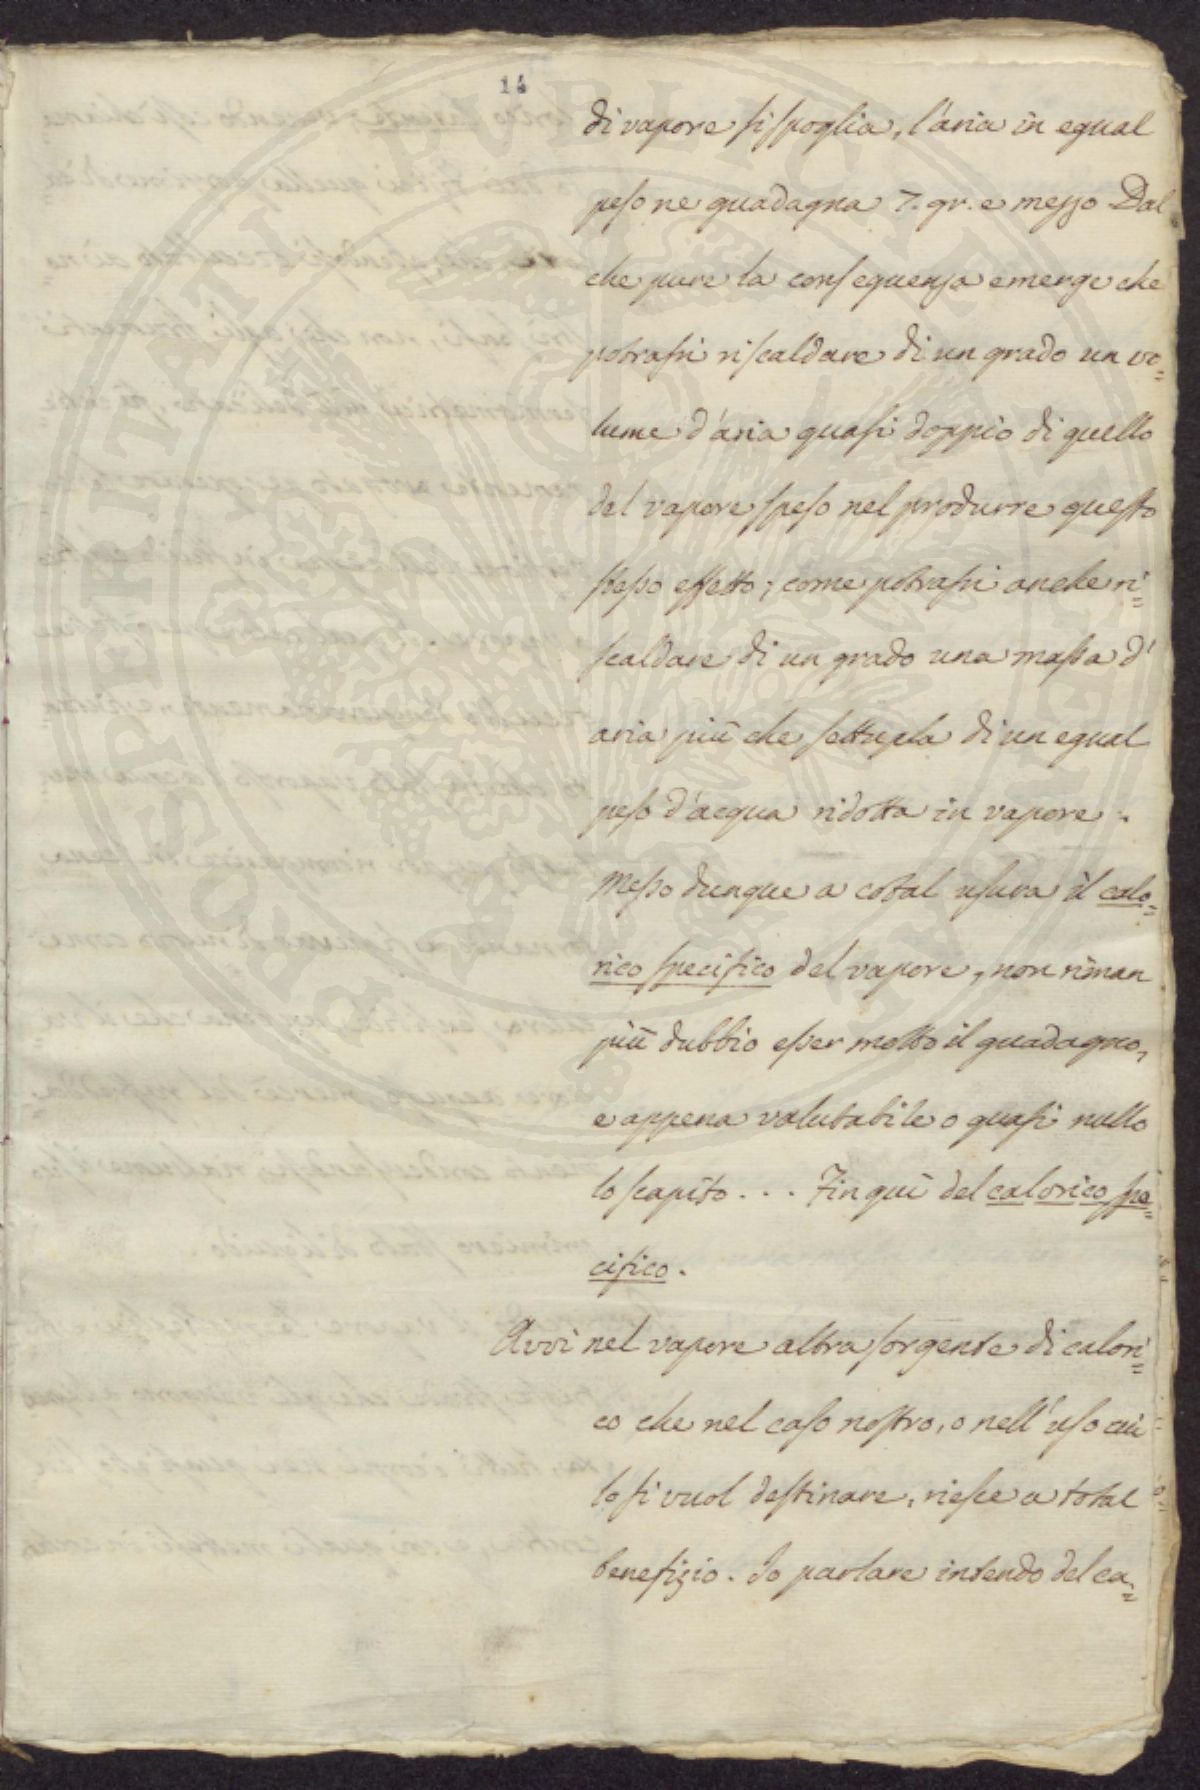 14
di vapore si spoglia, l'aria in egual
peso ne guadagna 7. gr. e mezzo Dal
che pure la conseguenza emerge che
potrassi riscaldare di un grado un vo=
lume d'aria quasi doppio di quello
del vapore speso nel produrre questo
stesso effetto; come potrassi anche ri=
scaldare di un grado una massa d'
aria più che settupla di un egual
peso d'acqua ridotta in vapore.
Messo dunque a cotal usura il calo=
rico specifico del vapore, non riman
più dubbio esser molto il guadagno,
e appena valutabile o quasi nullo
lo scapito... Fin quì del calorico spe=
cifico.
Avvi nel vapore altra sorgente di calori=
co che nel caso nostro, o nell'uso cui
lo si vuol destinare, riesce a total
benefizio. Io parlare intendo del ca=
PROSPERITATI PUBLICAE AUGENDAE